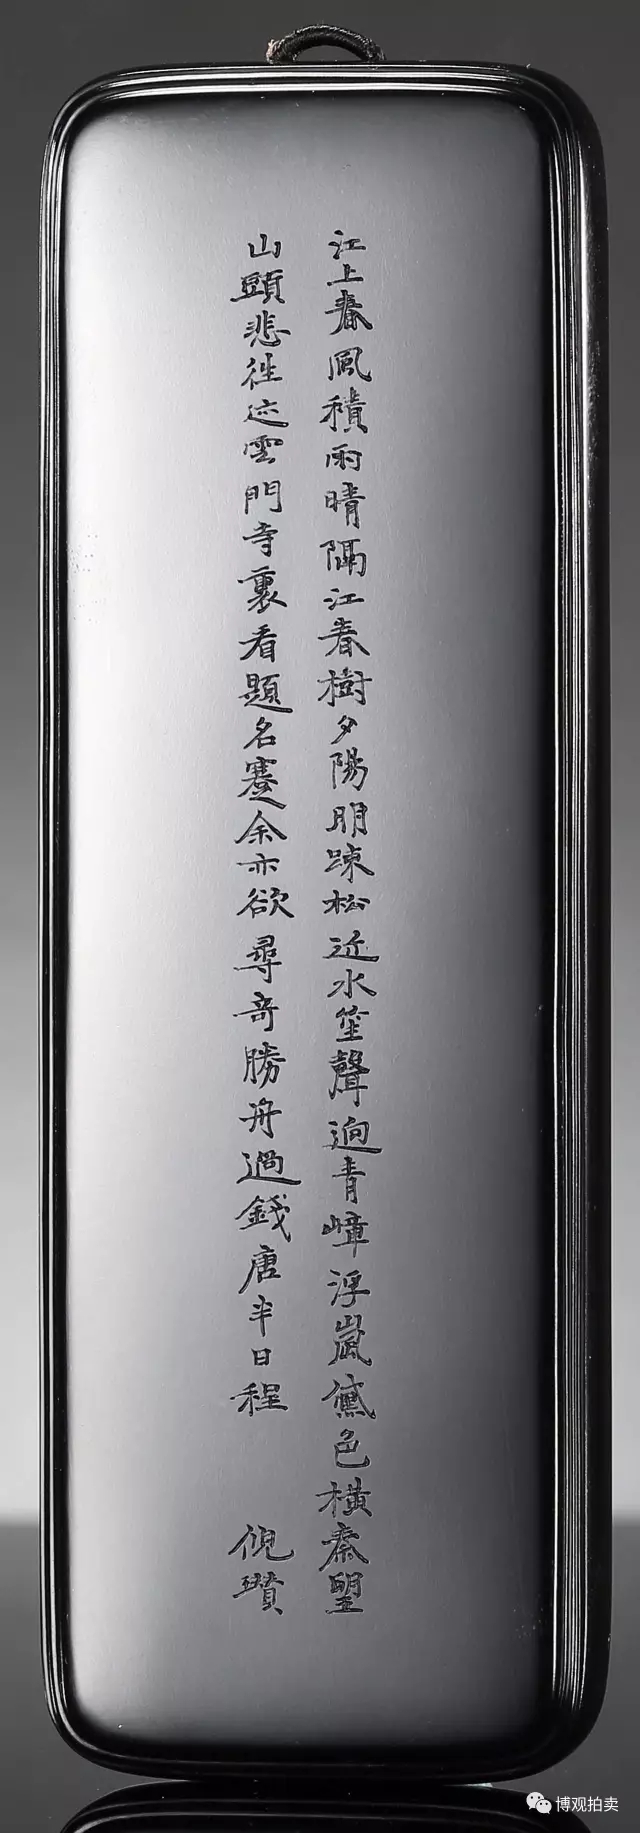 江上春風積雨晴隔江春樹夕陽明踈松近水笙聲迥青嶂浮嵐黛色橫秦望
山頭悲往迹雲門寺裏看題名蹇余亦欲尋奇勝舟過錢唐半日程
倪瓚
博观拍卖